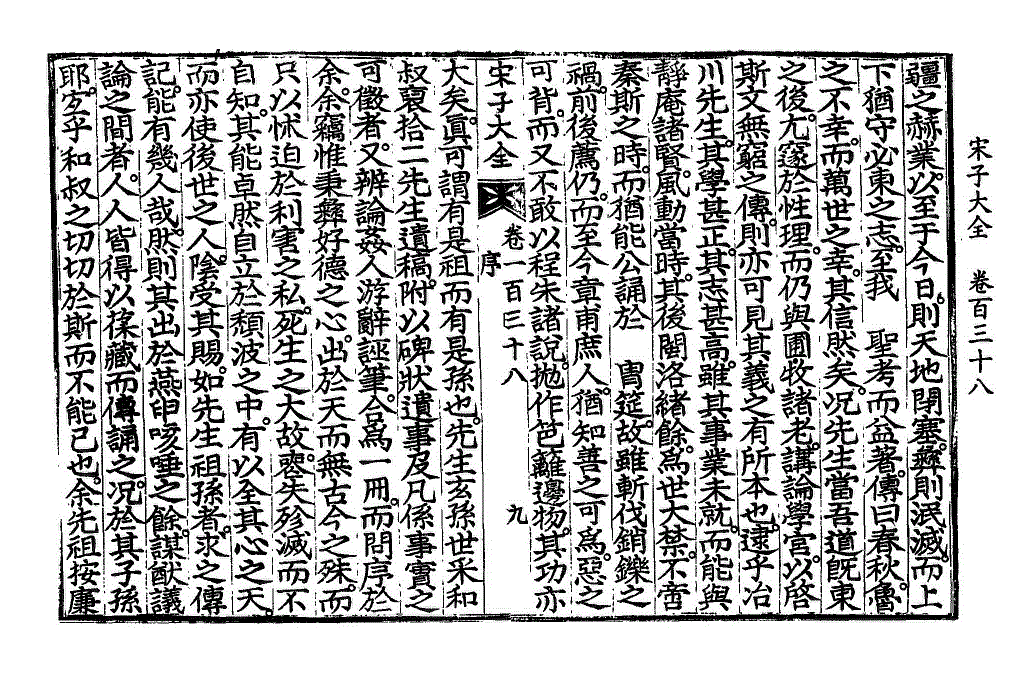 宋子大全　卷百三十八
疆之赫業。以至于今日。則天地閉塞。彝則泯滅。而上
下猶守必東之志。至我　聖考而益著。傳曰春秋。魯
之不幸。而萬世之幸。其信然矣。况先生當吾道旣東
之後。尤窾於性理。而仍與圃牧諸老。講論學官。以啓
斯文無窮之傳。則亦可見其義之有所本也。逮乎冶
川先生。其學甚正。其志甚高。雖其事業未就。而能與
靜庵諸賢。風動當時。其後閩洛緖餘。爲世大禁。不啻
秦斯之時。而猶能公誦於　胄筵。故雖斬伐銷鑠之
禍。前後薦仍。而至今章甫庶人。猶知善之可爲。惡之
可背。而又不敢以程朱諸說。抛作笆籬邊物。其功亦
宋子大全　卷一百三十八　序　九
大矣。眞可謂有是祖而有是孫也。先生玄孫世采和
叔裒拾二先生遺稿。附以碑狀遺事及凡係事實之
可徵者。又辨論姦人游辭誣筆。合爲一冊。而問序於
余。余竊惟秉彝好德之心。出於天而無古今之殊。而
只以怵迫於利害之私。死生之大故。喪失殄滅而不
自知。其能卓然自立於頹波之中。有以全其心之天。
而亦使後世之人。陰受其賜。如先生祖孫者。求之傳
記。能有幾人哉。然則其出於燕申咳唾之餘。謀猷議
論之間者。人人皆得以葆藏而傳誦之。况於其子孫
耶。宜乎和叔之切切於斯而不能已也。余先祖按廉